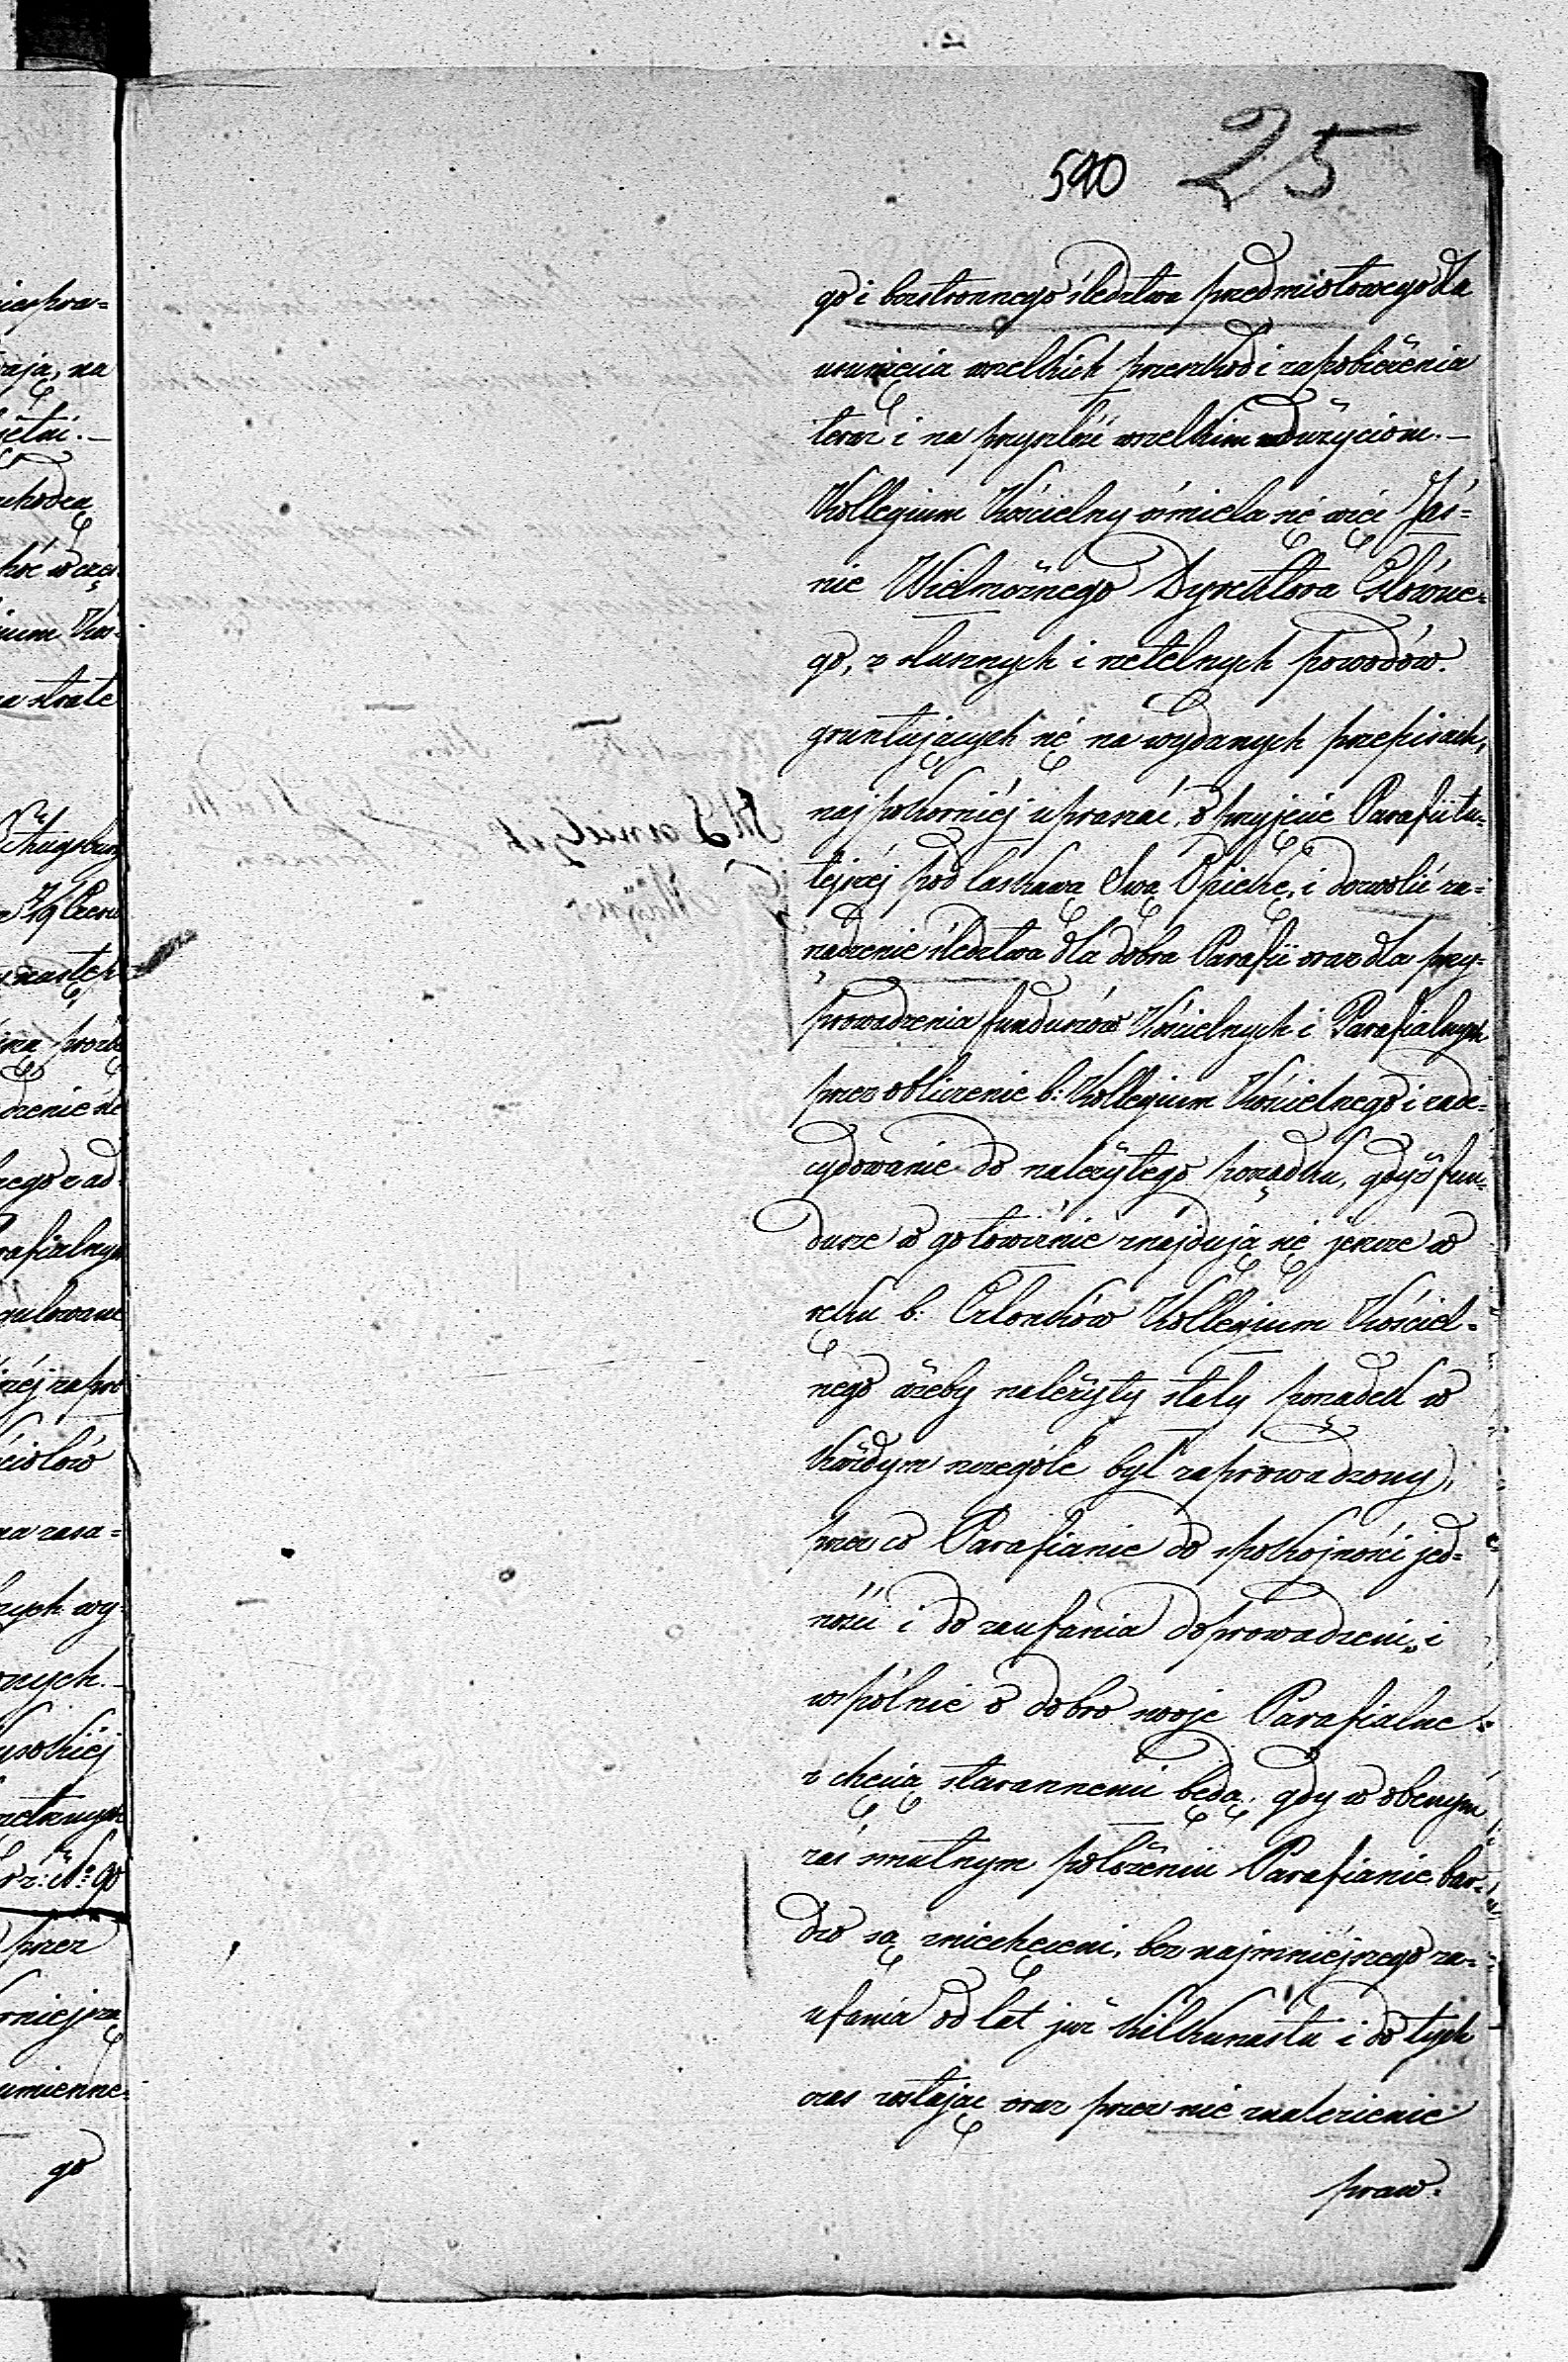 590 25
go i bezstronnego śledztwa przedmiotowego dla
usunięcia wszelkich przeszkod i zapobieżenia
teraz i na przyszłość wszelkim nadużyciom.—
Kollegium Kościelny ośmiela się więc Jaś-
nie Wielmożnego Dyrektora Główne-
go, z słusznych i rzetelnych powodów
gruntujących się na wydanych przepisach,
najpokorniéj upraszać, o przyjęcie Parafii tu-
tejszéj pod łaskawą Swą Opiekę, i dozwolić za-
rządzenie śledztwa dla dobra Parafii oraz dla przy-
prowadzenia funduszów Kościelnych i Parafialnych
przez obliczenie b: Kollegium Kościelnego i zade-
cydowanie do należytego porządku, gdyż fun-
dusze w gotowiźnie znajdują się jeszcze w
ręku b: Członków Kollegium Kościel-
nego ażeby należyty stały porządek w
każdym szczególe był zaprowadzony,
przez co Parafianie do spokojności jed-
ności i do zaufania doprowadzeni, i
wspólnie o dobro swoje Parafialne
z chęcią starannemi będą, gdy w obecnym
zaś smutnym położeniu Parafianie bar-
dzo są zniechęceni, bez najmniéjszego za-
ufania od lat już kilkunastu i do tych
czas zostając oraz przez nie znalezienie
praw-